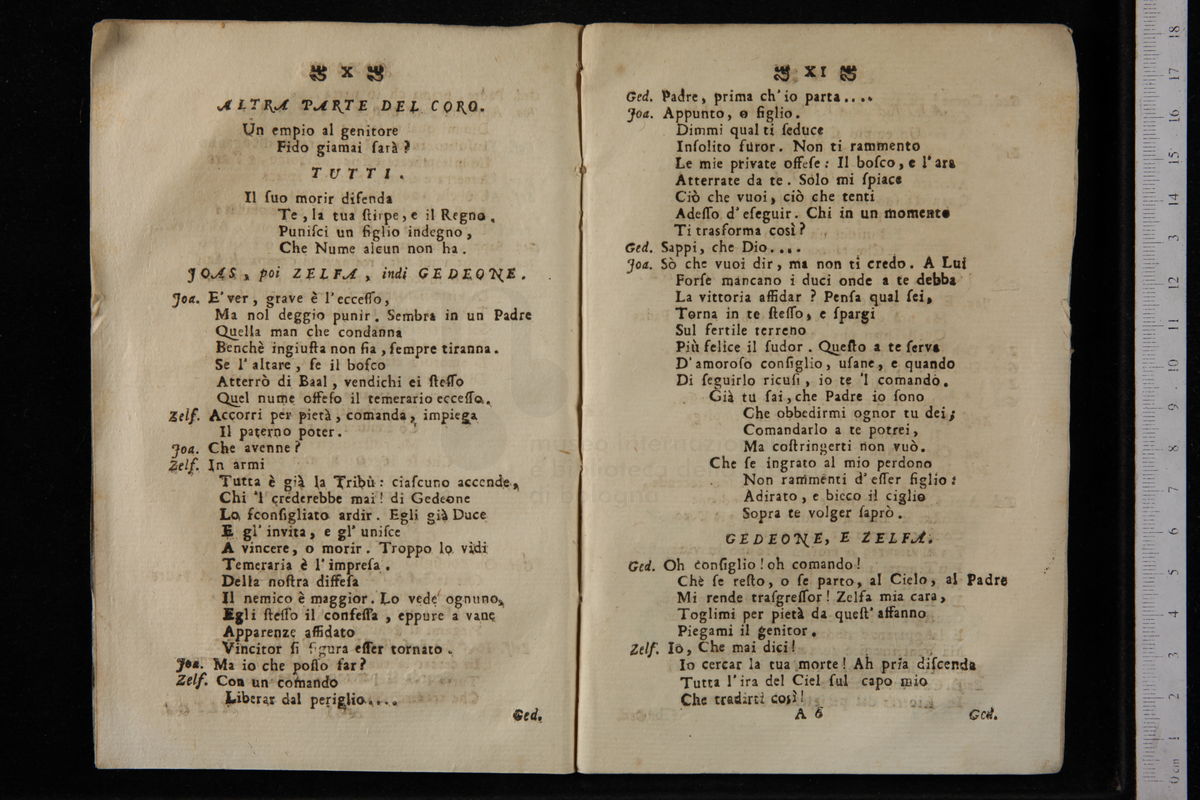 X
ALTRA PARTE DEL CORO.
Un empio al genitore
Fido giamai ſarà?
TUTTI.
Il ſuo morir difenda
Te, la tua ſtirpe, e il Regno,
Puniſci un figlio indegno,
Che Nume alcun non ha.
JOAS, poi ZELFA, indi GEDEONE.
Joa. E' ver, grave è l'ecceſſo,
Ma nol deggio punir. Sembra in un Padre
Quella man che condanna
Benchè ingiuſta non ſia, ſempre tiranna.
Se l'altare, ſe il boſco
Atterrò di Baal, vendichi ei ſteſſo
Quel nume offeſo il temerario ecceſſo.
Zelf. Accorri per pietà, comanda, impiega
Il paterno poter.
Joa. Che avenne?
Zelf. In armi
Tutta è già la Tribù: ciaſcuno accende,
Chi 'l crederebbe mai! di Gedeone
Lo ſconſigliato ardir. Egli già Duce
E gl'invita, e gl'uniſce
A vincere, o morir. Troppo lo vidi
Temeraria è l'impreſa.
Della noſtra diffeſa
Il nemico è maggior. Lo vede ognuno,
Egli ſteſſo il confeſſa, eppure a vane
Apparenze affidato
Vincitor ſi figura eſſer tornato.
Joa. Ma io che poſſo far?
Zelf. Con un comando
Liberar dal periglio....
Ged.
XI
Ged. Padre, prima ch'io parta....
Joa. Appunto, o figlio.
Dimmi qual ti ſeduce
Inſolito furor. Non ti rammento
Le mie private offeſe: Il boſco, e l'ara
Atterrate da te. Sólo mi ſpiace
Ciò che vuoi, ciò che tenti
Adeſſo d'eſeguir. Chi in un momento
Ti trasforma così?
Ged. Sappi, che Dio....
Joa. Sò che vuoi dir, ma non ti credo. A Lui
Forſe mancano i duci onde a te debba
La vittoria affidar? Penſa qual ſei,
Torna in te ſteſſo, e ſpargi
Sul fertile terreno
Più felice il ſudor. Queſto a te ſerva
D'amoroſo conſiglio, uſane, e quando
Di ſeguirlo ricuſi, io te 'l comando.
Già tu ſai, che Padre io ſono
Che obbedirmi ognor tu dei;
Comandarlo a te potrei,
Ma coſtringerti non vuò.
Che ſe ingrato al mio perdono
Non rammenti d'eſſer figlio:
Adirato, e bieco il ciglio
Sopra te volger ſaprò.
GEDEONE, E ZELFA.
Ged. Oh conſiglio! oh comando!
Chè ſe reſto, o ſe parto, al Cielo, al Padre
Mi rende traſgreſſor! Zelfa mia cara,
Toglimi per pietà da queſt'affanno
Piegami il genitor.
Zelf. Io, Che mai dici!
Io cercar la tua morte! Ah pria diſcenda
Tutta l'ira del Ciel ſul capo mio
Che tradirti così!
A 6
Ged.
museo internazionale
e biblioteca de
di bologna